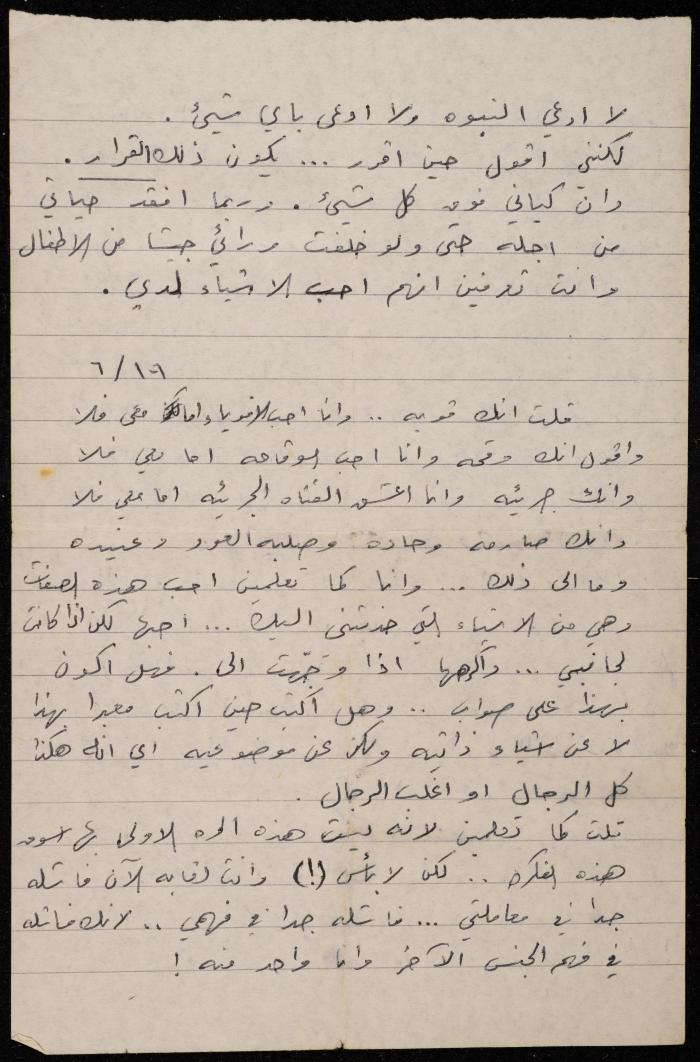 لا ادعي النبوه ولا ادعى باي شيئ .
لكنني اقول حين اقرر ... يكون ذلك القرار .
وان كياني فوق كل شيئ . وربما افقد حياتي
من اجله حتى ولو خلفت ورائي جيشا من الاطفال
وانت تعرفين انهم احب الاشياء لدي .
٦/١٦
قلت انك قويه .. وانا احب الاقوياء اما معي فلا
واقول انك وقحه وانا احب الوقاحه اما معي فلا
وانك جريئه وانا اعشق الفتاه الجريئه اما معي فلا
وانك صارمه وحادة وصلبه العود وعنيده
وما الى ذلك ... وانا كما تعلمين احب هذه الصفات
وهي من الاشياء التي جذبتني اليك ... احبها لكن اذا كانت
لجانبي ... واكرهها اذا وجّهت الى . فهل اكون
بهذا على صواب .. وهل اكتب حين اكتب معبرا بهذا
لا عن اشياء ذاتيه ولكن عن موضوعيه اي انه هكذا
كل الرجال او اغلب الرجال .
قلت كما تعلمين لانه ليست هذه المره الاولى بها اسوق
هذه الفكره .. لكن لا بأس (!) وانت لغايه الآن فاشله
جدا في معاملتي ... فاشله جدا في فهمي .. لانك فاشله
في فهم الجنس الآخر وانا واحد منه !